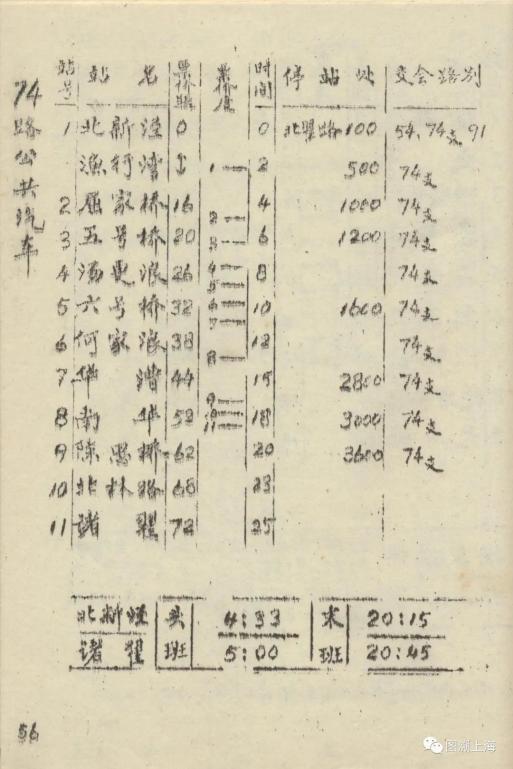 74路公共汽车
站号 站名 票价 票价 时间 停站处 交会路别
1 北新泾 0 0 北翟路 100 54、74支、91
渔村湾 1 2 500 74支
2 屈家桥 16 2 4 1000 74支
3 五号桥 20 3 6 1200 74支
4 汤更浪 26 4 5 8 74支
5 六号桥 32 6 7 10 1600 74支
6 何家浪 38 8 12 74支
7 华漕 44 15 2800 74支
8 南华 52 9 10 11 18 3000 74支
9 陈思桥 62 20 3600 74支
10 北林路 68 23
11 诸翟 72 25
北新泾 头 4:33 末 20:15
诸翟 班 5:00 班 20:45
56
图溯上海